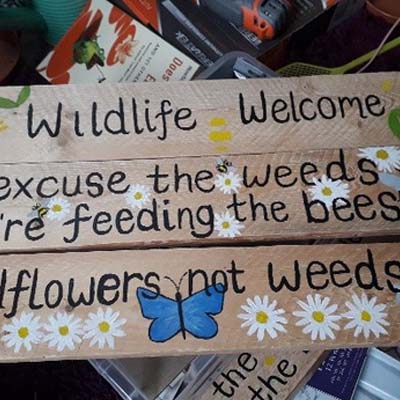 Wildlife Welcome
excuse the weeds
're feeding the bees
lflowers not weeds
the
the
Does